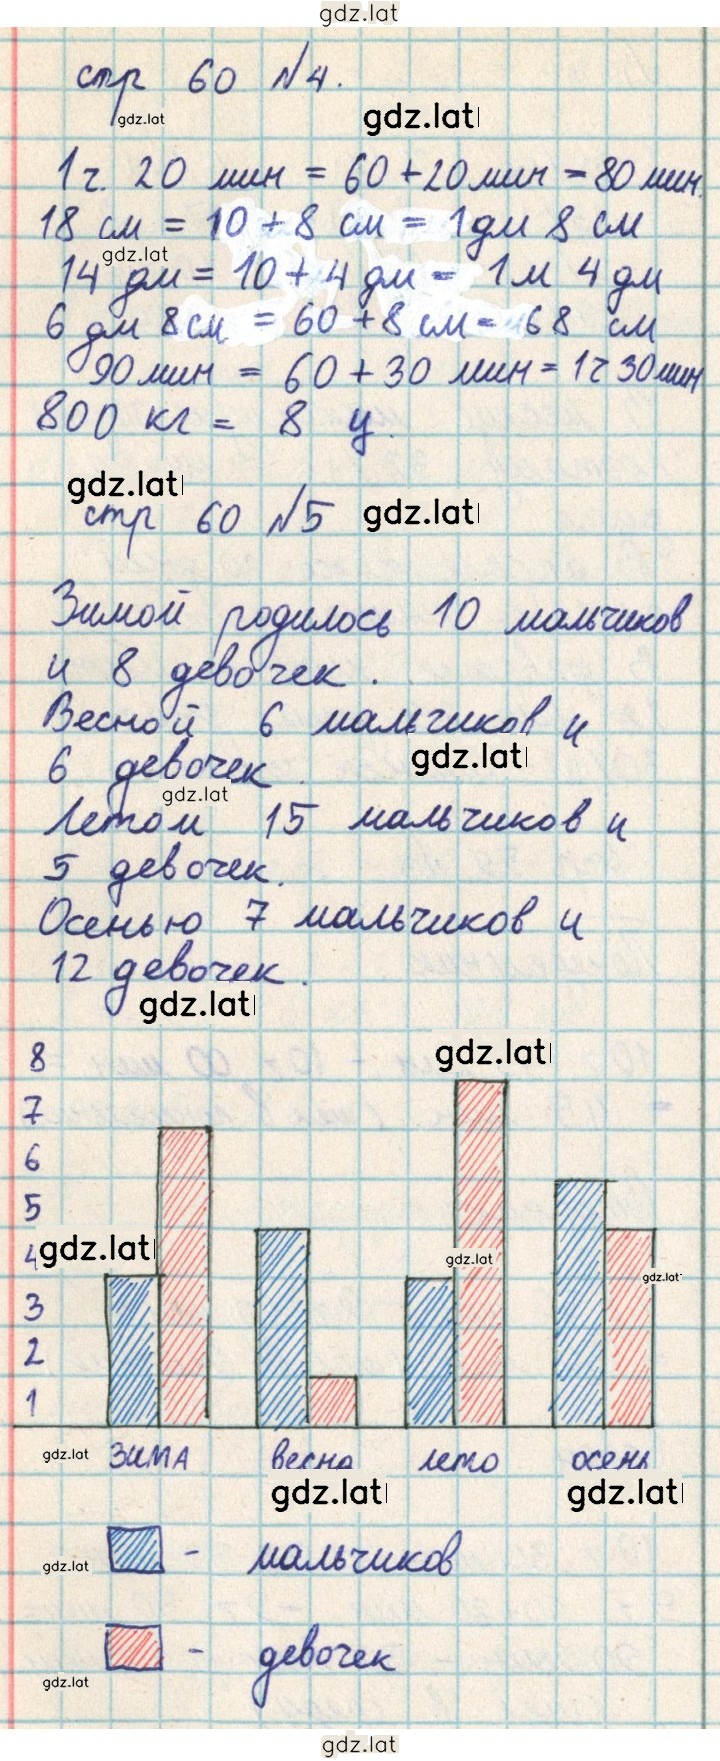 gdz.lat
стр 60 №4.
gdz.lat
gdz.lat
1ч. 20 мин = 60+20 мин = 80 мин.
18 см = 10 + 8 см = 1 дм 8 см
gdz.lat
14 дм = 10 + 4 дм = 1 м 4 дм
6 дм 8 см = 60 + 8 см = 68 см
90 мин = 60 + 30 мин = 1 ч 30 мин
800 кг = 8 ц.
gdz.lat
стр 60 №5
gdz.lat
Зимой родилось 10 мальчиков
и 8 девочек.
Весной 6 мальчиков и
gdz.lat
6 девочек.
gdz.lat
Летом 15 мальчиков и
5 девочек.
Осенью 7 мальчиков и
12 девочек.
gdz.lat
gdz.lat
8
7
6
5
4
gdz.lat
gdz.lat
gdz.lat
3
2
1
gdz.lat
зима весна лето осень
gdz.lat
gdz.lat
gdz.lat
- мальчиков
- девочек
gdz.lat
gdz.lat